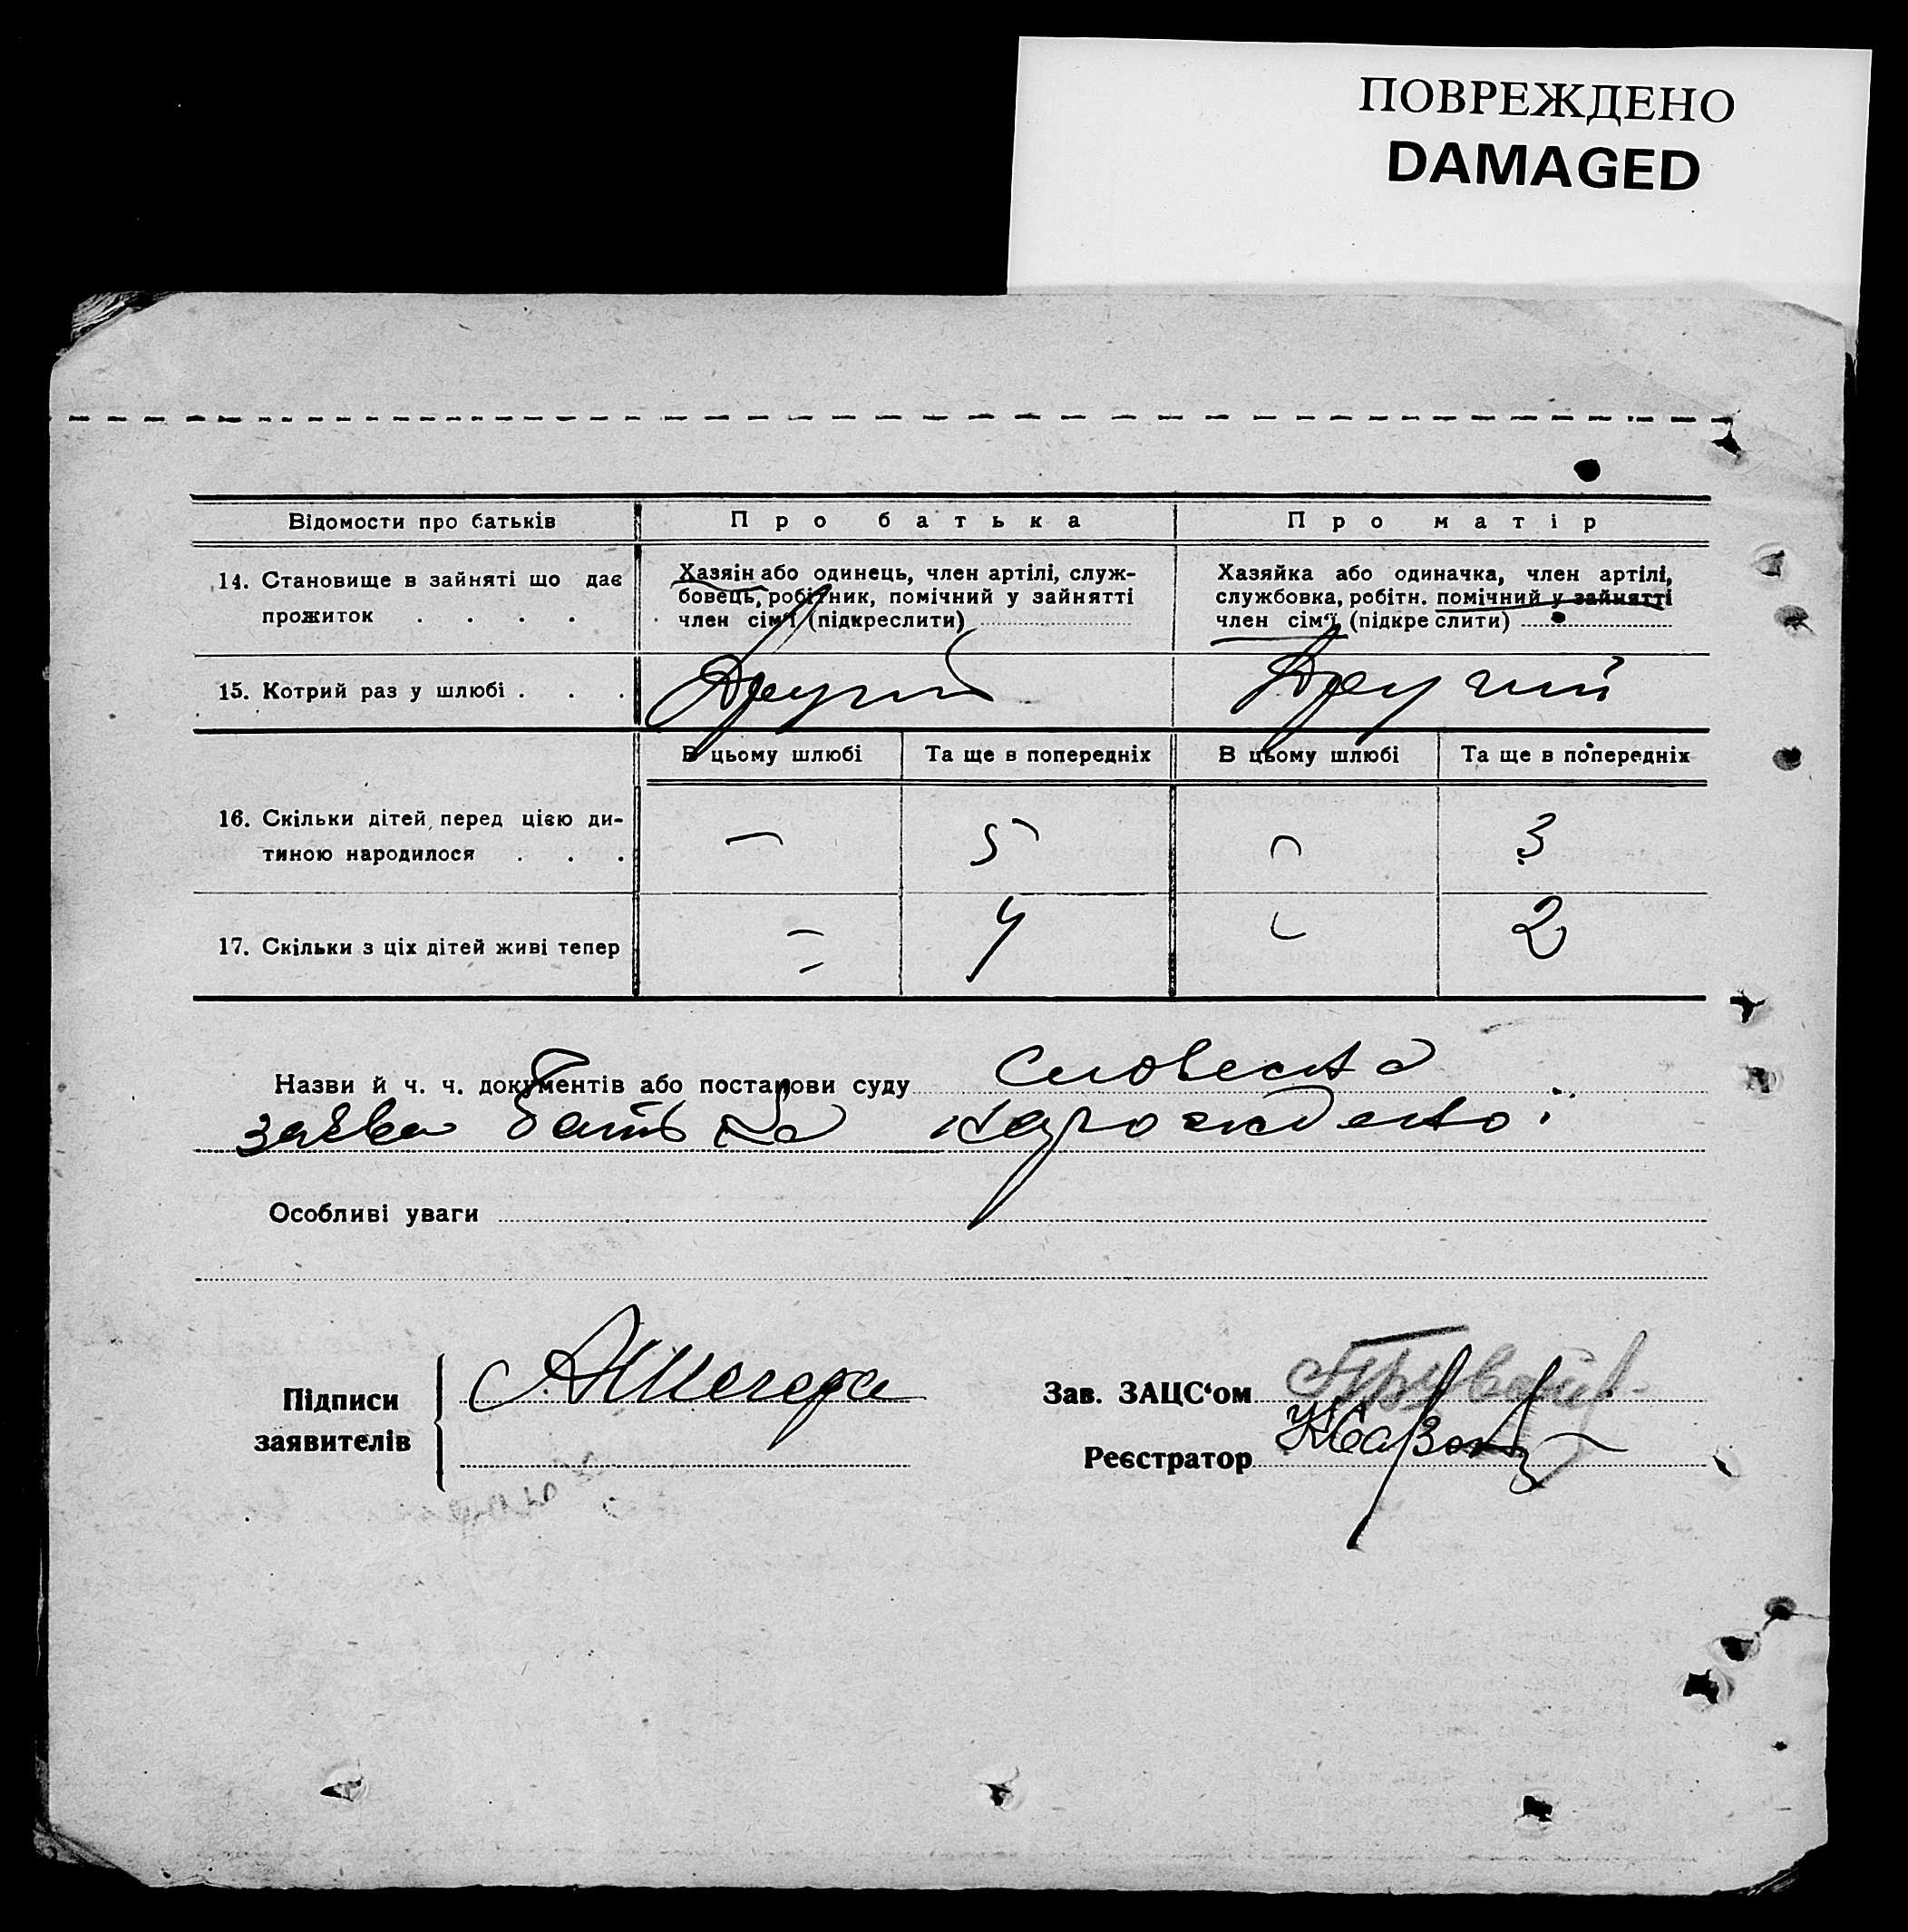 ПОВРЕЖДЕНО
DAMAGED
Відомости про батьків
Про батька
Про матір
14. Становище в зайняті що дає
прожиток . . . .
Хазяїн або одинець, член артілі, служ-
бовець, робітник, помічний у зайнятті
член сім'ї (підкреслити)
Хазяйка або одиначка, член артілі,
службовка, робітн. помічний у зайнятті
член сім'ї (підкреслити)
15. Котрий раз у шлюбі . . .
Другий
Другий
В цьому шлюбі
Та ще в попередніх
В цьому шлюбі
Та ще в попередніх
16. Скільки дітей перед цією ди-
тиною народилося . . .
—
5
—
3
17. Скільки з ціх дітей живі тепер
—
4
—
2
Назви й ч. ч. документів або постанови суду Словесна
заява батька
Особливі уваги
Підписи
заявителів
Зав. ЗАЦС‘ом
Реєстратор